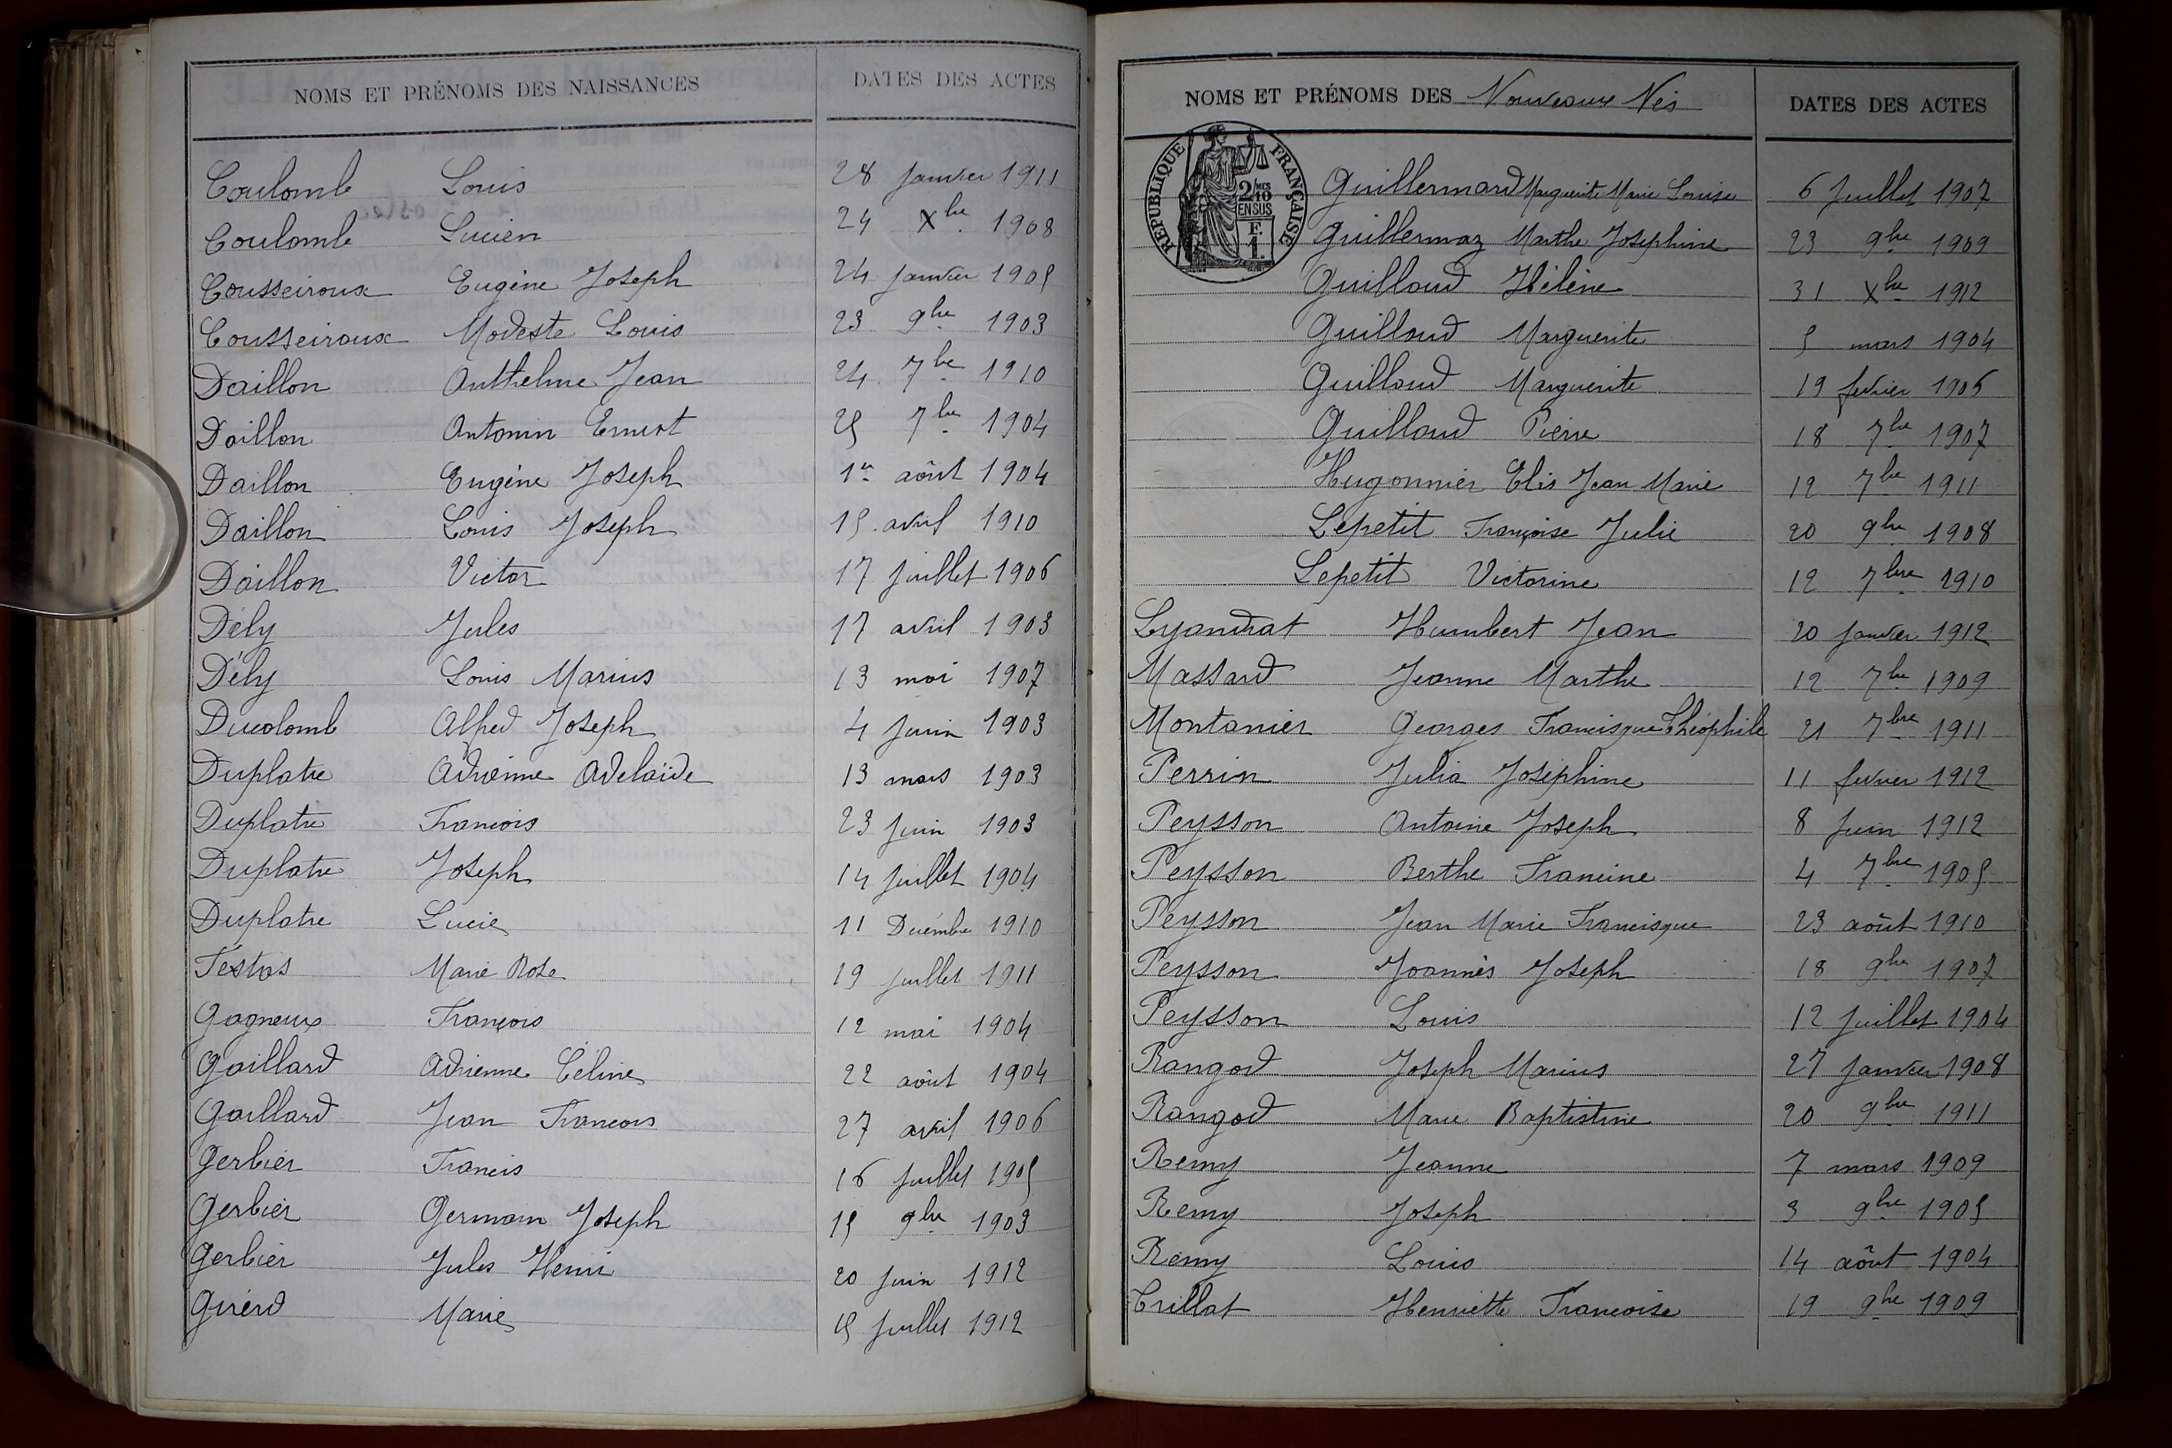 NOMS ET PRÉNOMS DES NAISSANCES DATES DES ACTES
Coulomb Louis 28 janvier 1911
Coulomb Lucien 24 Xbre 1908
Cousseiroux Eugène Joseph 24 janvier 1905
Cousseiroux Modeste Louis 23 9bre 1903
Daillon Anthelme Jean 24 7bre 1910
Daillon Antonin Ernest 25 7bre 1904
Daillon Eugène Joseph 1er août 1904
Daillon Louis Joseph 15 avril 1910
Daillon Victor 17 juillet 1906
Dély Jules 17 avril 1903
Dély Louis Marius 13 mai 1907
Ducolomb Alfred Joseph 4 juin 1903
Duplatre Adrienne Adelaïde 13 mars 1903
Duplatre Francois 23 juin 1903
Duplatre Joseph 14 juillet 1904
Duplatre Lucie 11 Décembre 1910
Festas Marie Rose 19 juillet 1911
Gagneux François 12 mai 1904
Gaillard Adrienne Céline 22 août 1904
Gaillard Jean Francois 27 avril 1906
Gerbier Francis 16 juillet 1905
Gerbier Germain Joseph 15 9bre 1903
Gerbier Jules Henri 20 juin 1912
Girerd Marie 15 juillet 1912
NOMS ET PRÉNOMS DES Nouveaux Nés DATES DES ACTES
RÉPUBLIQUE FRANÇAISE
2/10 MES
EN SUS
F.
1.
Guillermard Marguerite Marie Louise 6 Juillet 1907
Guillermaz Marthe Joséphine 23 9bre 1909
Guilloud Hélène 31 Xbre 1912
Guilloud Marguerite 5 mars 1904
Guilloud Marguerite 19 février 1906
Guilloud Pierre 18 7bre 1907
Hugonnier Elis Jean Marie 12 7bre 1911
Lepetit Françoise Julie 20 9bre 1908
Lepetit Victorine 12 7bre 1910
Lyandrat Humbert Jean 20 janvier 1912
Massard Jeanne Marthe 12 7bre 1909
Montanier Georges Francisque Théophile 21 7bre 1911
Perrin Julia Joséphine 11 fevrier 1912
Peysson Antoine Joseph 8 Juin 1912
Peysson Berthe Francine 4 7bre 1905
Peysson Jean Marie Francisque 23 août 1910
Peysson Joannès Joseph 18 9bre 1907
Peysson Louis 12 juillet 1904
Rangod Joseph Marius 27 janvier 1908
Rangod Marie Baptistine 20 9bre 1911
Remy Jeanne 7 mars 1909
Remy Joseph 3 9bre 1905
Remy Louis 14 août 1904
Trillat Henriette Francoise 19 9bre 1909